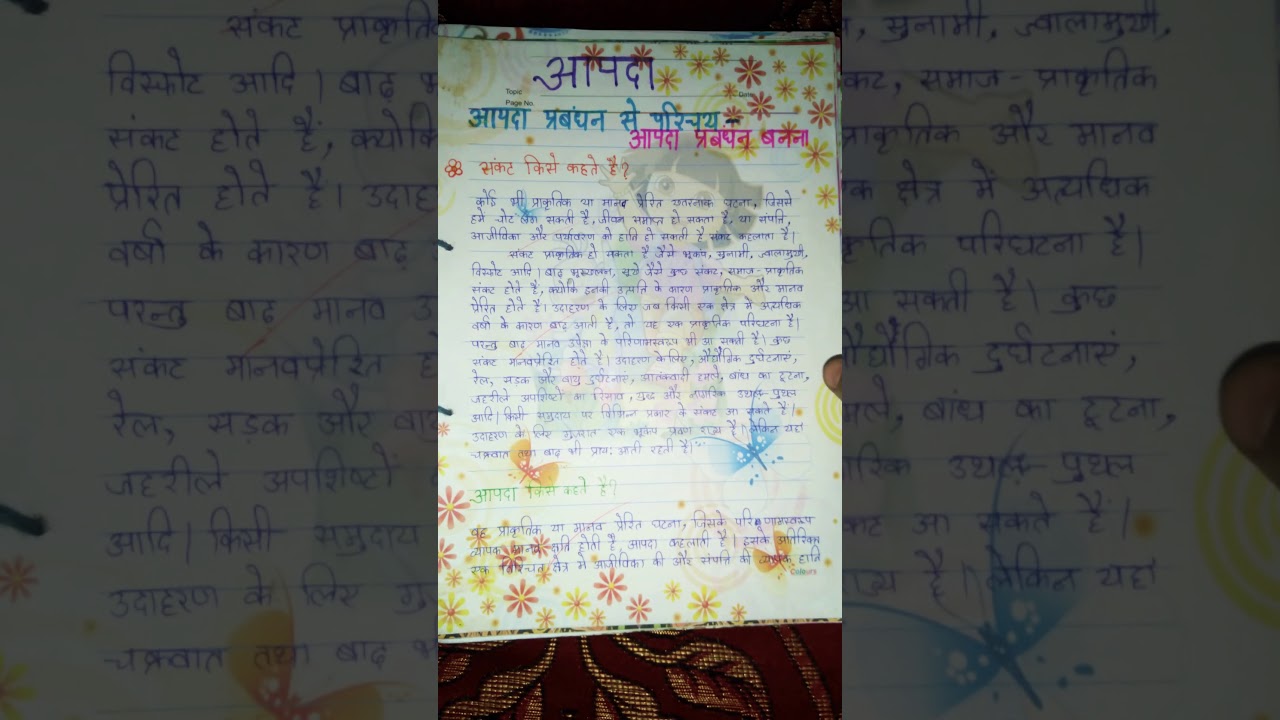 आपदा
Topic
Date
Page No.
आपदा प्रबंधन से परिचय -
आपदा प्रबंधन बनना
संकट किसे कहते है?
कोई भी प्राकृतिक या मानव प्रेरित खतरनाक घटना, जिससे
हमे चोट लग सकती है, जीवन समाप्त हो सकता है, या संपत्ति,
आजीविका और पर्यावरण को हानि हो सकती है संकट कहलाता है।
संकट प्राकृतिक हो सकता है जैसे भूकंप, सुनामी, ज्वालामुखी,
विस्फोट आदि। बाढ़ भूस्खलन, सूखे जैसे कुछ संकट, समाज - प्राकृतिक
संकट होते हैं, क्योकि इनकी उत्पत्ति के कारण प्राकृतिक और मानव
प्रेरित होते है। उदाहरण के लिए जब किसी एक क्षेत्र में अत्यधिक
वर्षा के कारण बाढ़ आती है, तो यह एक प्राकृतिक परिघटना है।
परन्तु बाढ़ मानव उपेक्षा के परिणामस्वरूप भी आ सकती है। कुछ
संकट मानवप्रेरित होते है। उदाहरण के लिए, औद्यौगिक दुर्घटनाएं,
रेल, सड़क और वायु दुर्घटनाएं, आतंकवादी हमले, बांध का टूटना,
जहरीले अपशिष्टों का रिसाव, युद्ध और नागरिक उथल-पुथल
आदि। किसी समुदाय पर विभिन्न प्रकार के संकट आ सकते है।
उदाहरण के लिए गुजरात एक भूकंप प्रवण राज्य है। लेकिन यहां
चक्रवात तथा बाढ़ भी प्राय: आती रहती है।
आपदा किसे कहते है?
वह प्राकृतिक या मानव प्रेरित घटना, जिसके परिणामस्वरूप
व्यापक मानव क्षति होती है आपदा कहलाती है। इसके अतिरिक्त
एक निश्चित क्षेत्र में आजीविका की और संपत्ति की व्यापक हानि
Colours